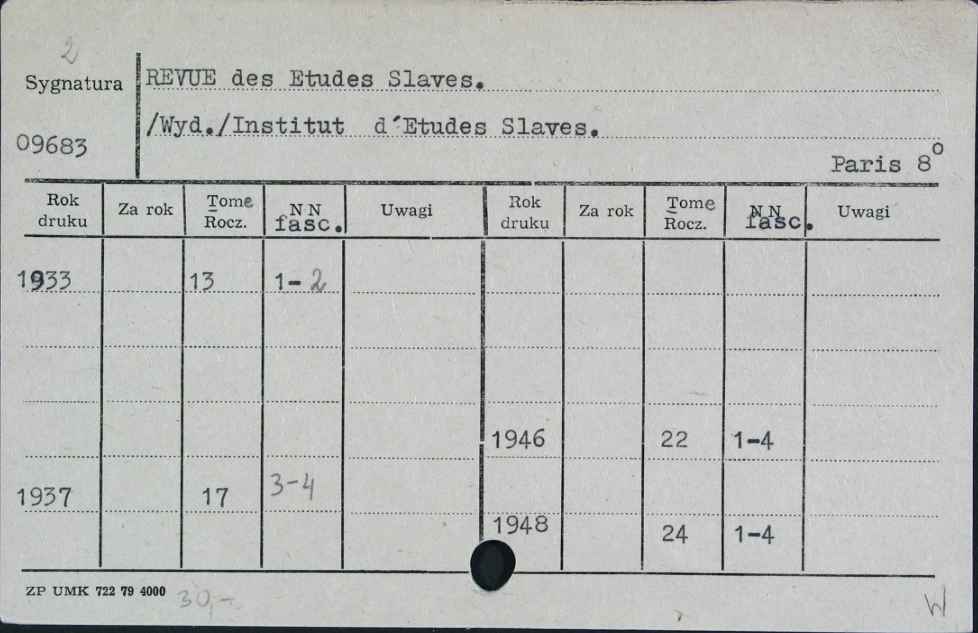 2
Sygnatura
REVUE des Etudes Slaves.
/Wyd./Institut d´Etudes Slaves.
09683
Paris 8°
Rok druku Za rok Tome Rocz. NN fasc. Uwagi Rok druku Za rok Tome Rocz. NN fasc. Uwagi
1933 13 1-2
1946 22 1-4
1937 17 3-4
1948 24 1-4
ZP UMK 722 79 4000 30,-
W